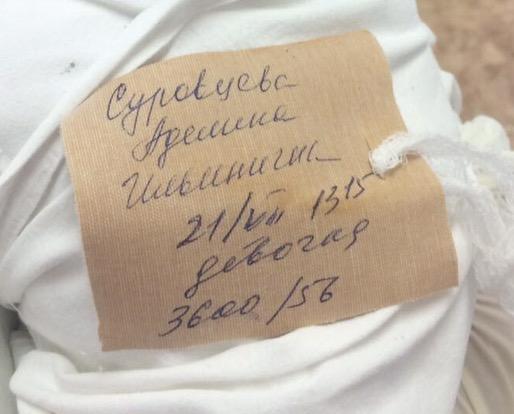 Суровцева
Аделина
Ильинична
21/VII 1315
девочка
3600/56